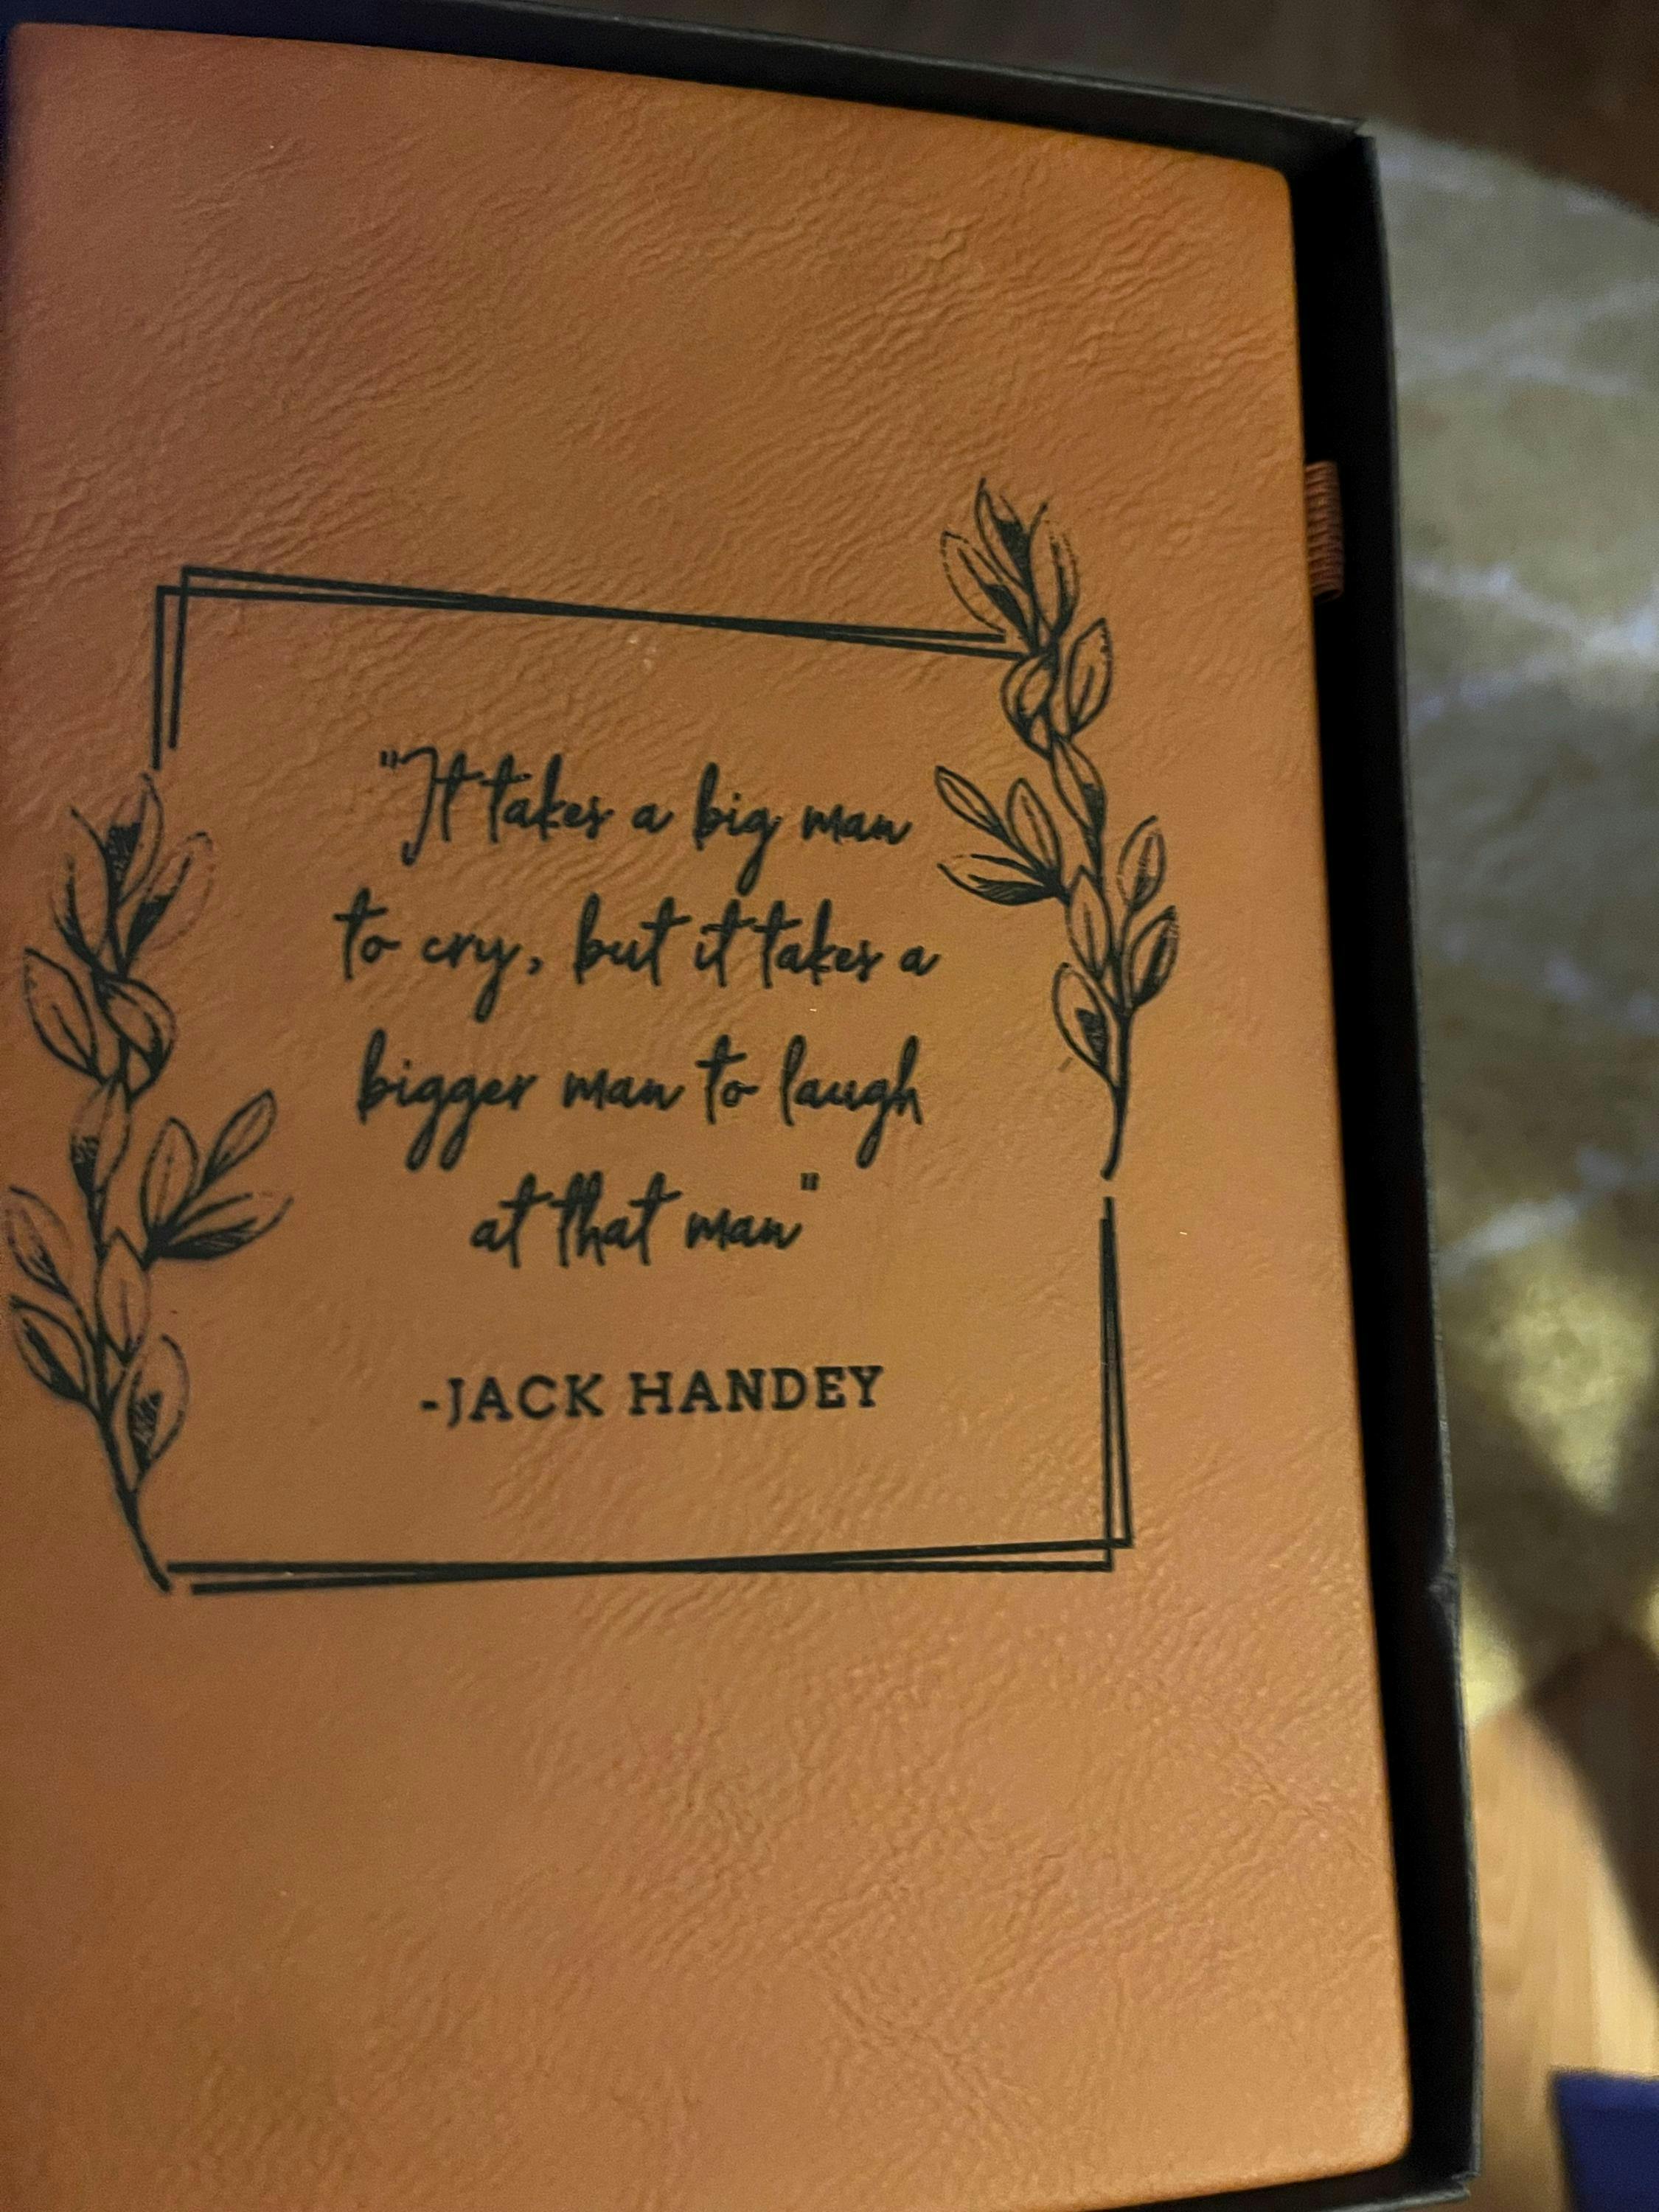 "It takes a big man
to cry, but it takes a
bigger man to laugh
at that man"
-JACK HANDEY